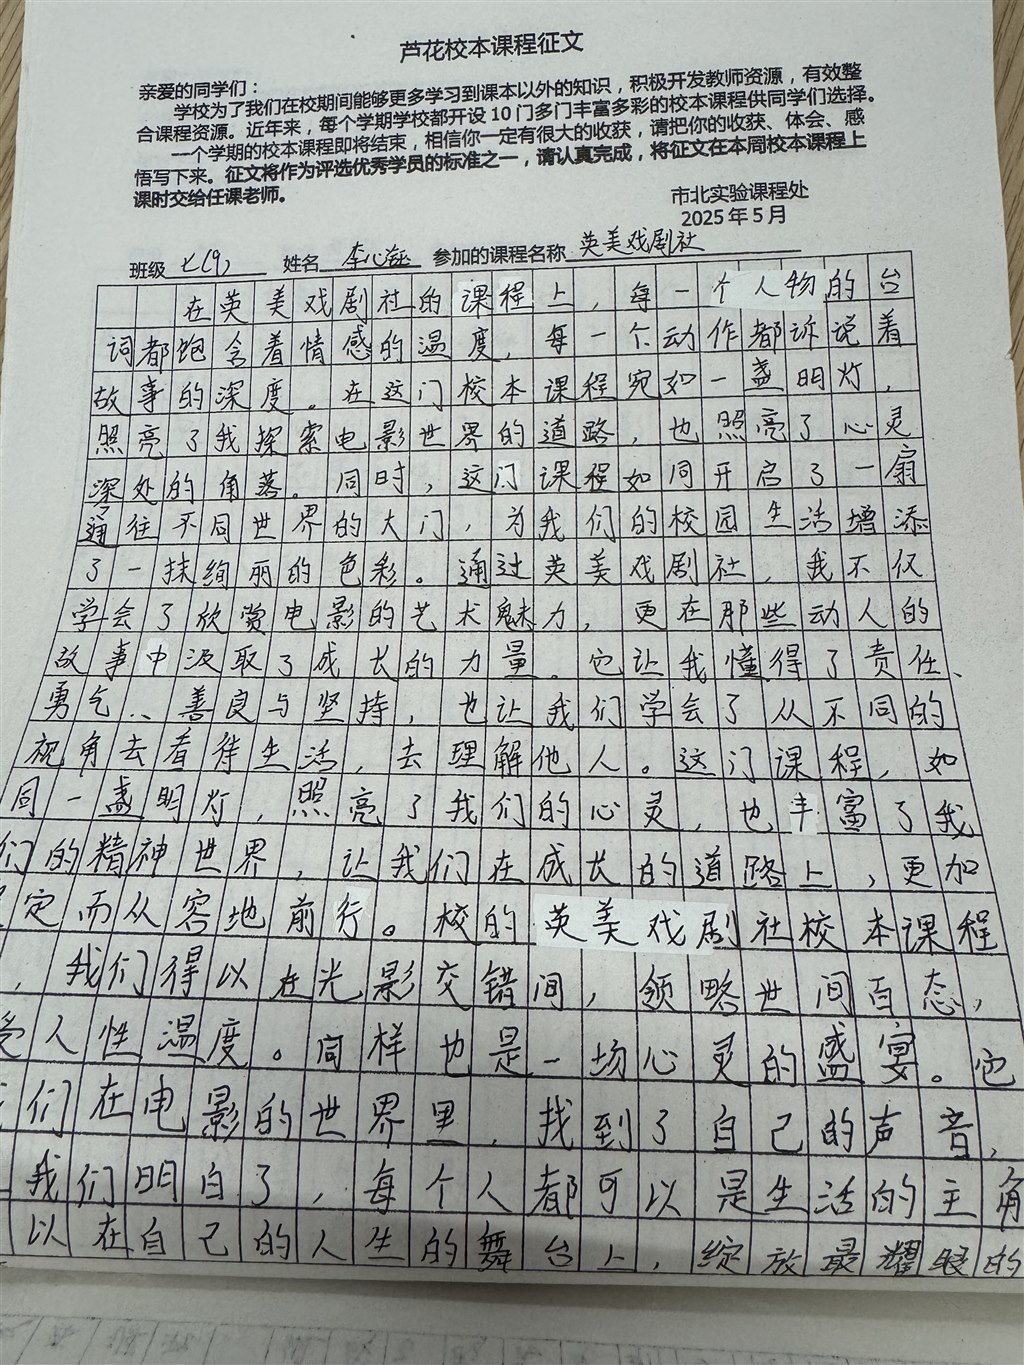 芦花校本课程征文
亲爱的同学们：
学校为了我们在校期间能够更多学习到课本以外的知识，积极开发教师资源，有效整
合课程资源。近年来，每个学期学校都开设10门多门丰富多彩的校本课程供同学们选择。
一个学期的校本课程即将结束，相信你一定有很大的收获，请把你的收获、体会、感
悟写下来。征文将作为评选优秀学员的标准之一，请认真完成，将征文在本周校本课程上
课时交给任课老师。
市北实验课程处
2025年5月
班级 七(9) 姓名 李心 参加的课程名称 英美戏剧社
在英美戏剧社的课程上，每一个人物的台
词都饱含着情感的温度，每一个动作都诉说着
故事的深度。在这门校本课程宛如一盏明灯，
照亮了我探索电影世界的道路，也照亮了心灵
深处的角落。同时，这门课程如同开启了一扇
通往不同世界的大门，为我们的校园生活增添
了一抹绚丽的色彩。通过英美戏剧社，我不仅
学会了欣赏电影的艺术魅力，更在那些动人的
故事中汲取了成长的力量。它让我懂得了责任、
勇气、善良与坚持，也让我们学会了从不同的
视角去看待生活，去理解他人。这门课程，如
同一盏明灯，照亮了我们的心灵，也丰富了我
们的精神世界，让我们在成长的道路上，更加
定而从容地前行。校的英美戏剧社校本课程
，我们得以在光影交错间，领略世间百态，
受人性温度。同样也是一场心灵的盛宴。它
们在电影的世界里，找到了自己的声音，
我们明白了，每个人都可以是生活的主角
以在自己的人生的舞台上，绽放最耀眼的